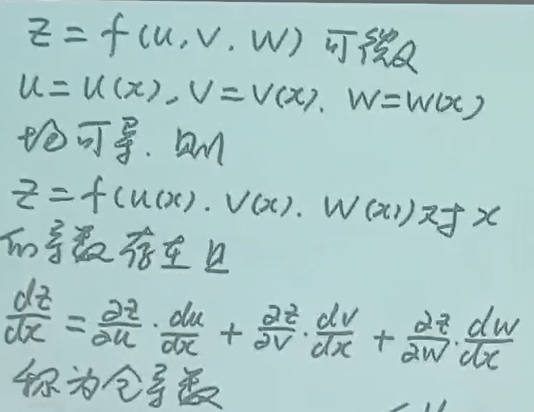 z = f(u, v, w) 可微
u = u(x), v = v(x), w = w(x)
均可导, 则
z = f(u(x), v(x), w(x)) 对 x
的导数存在且
dz/dx = ∂z/∂u · du/dx + ∂z/∂v · dv/dx + ∂z/∂w · dw/dx
称为全导数